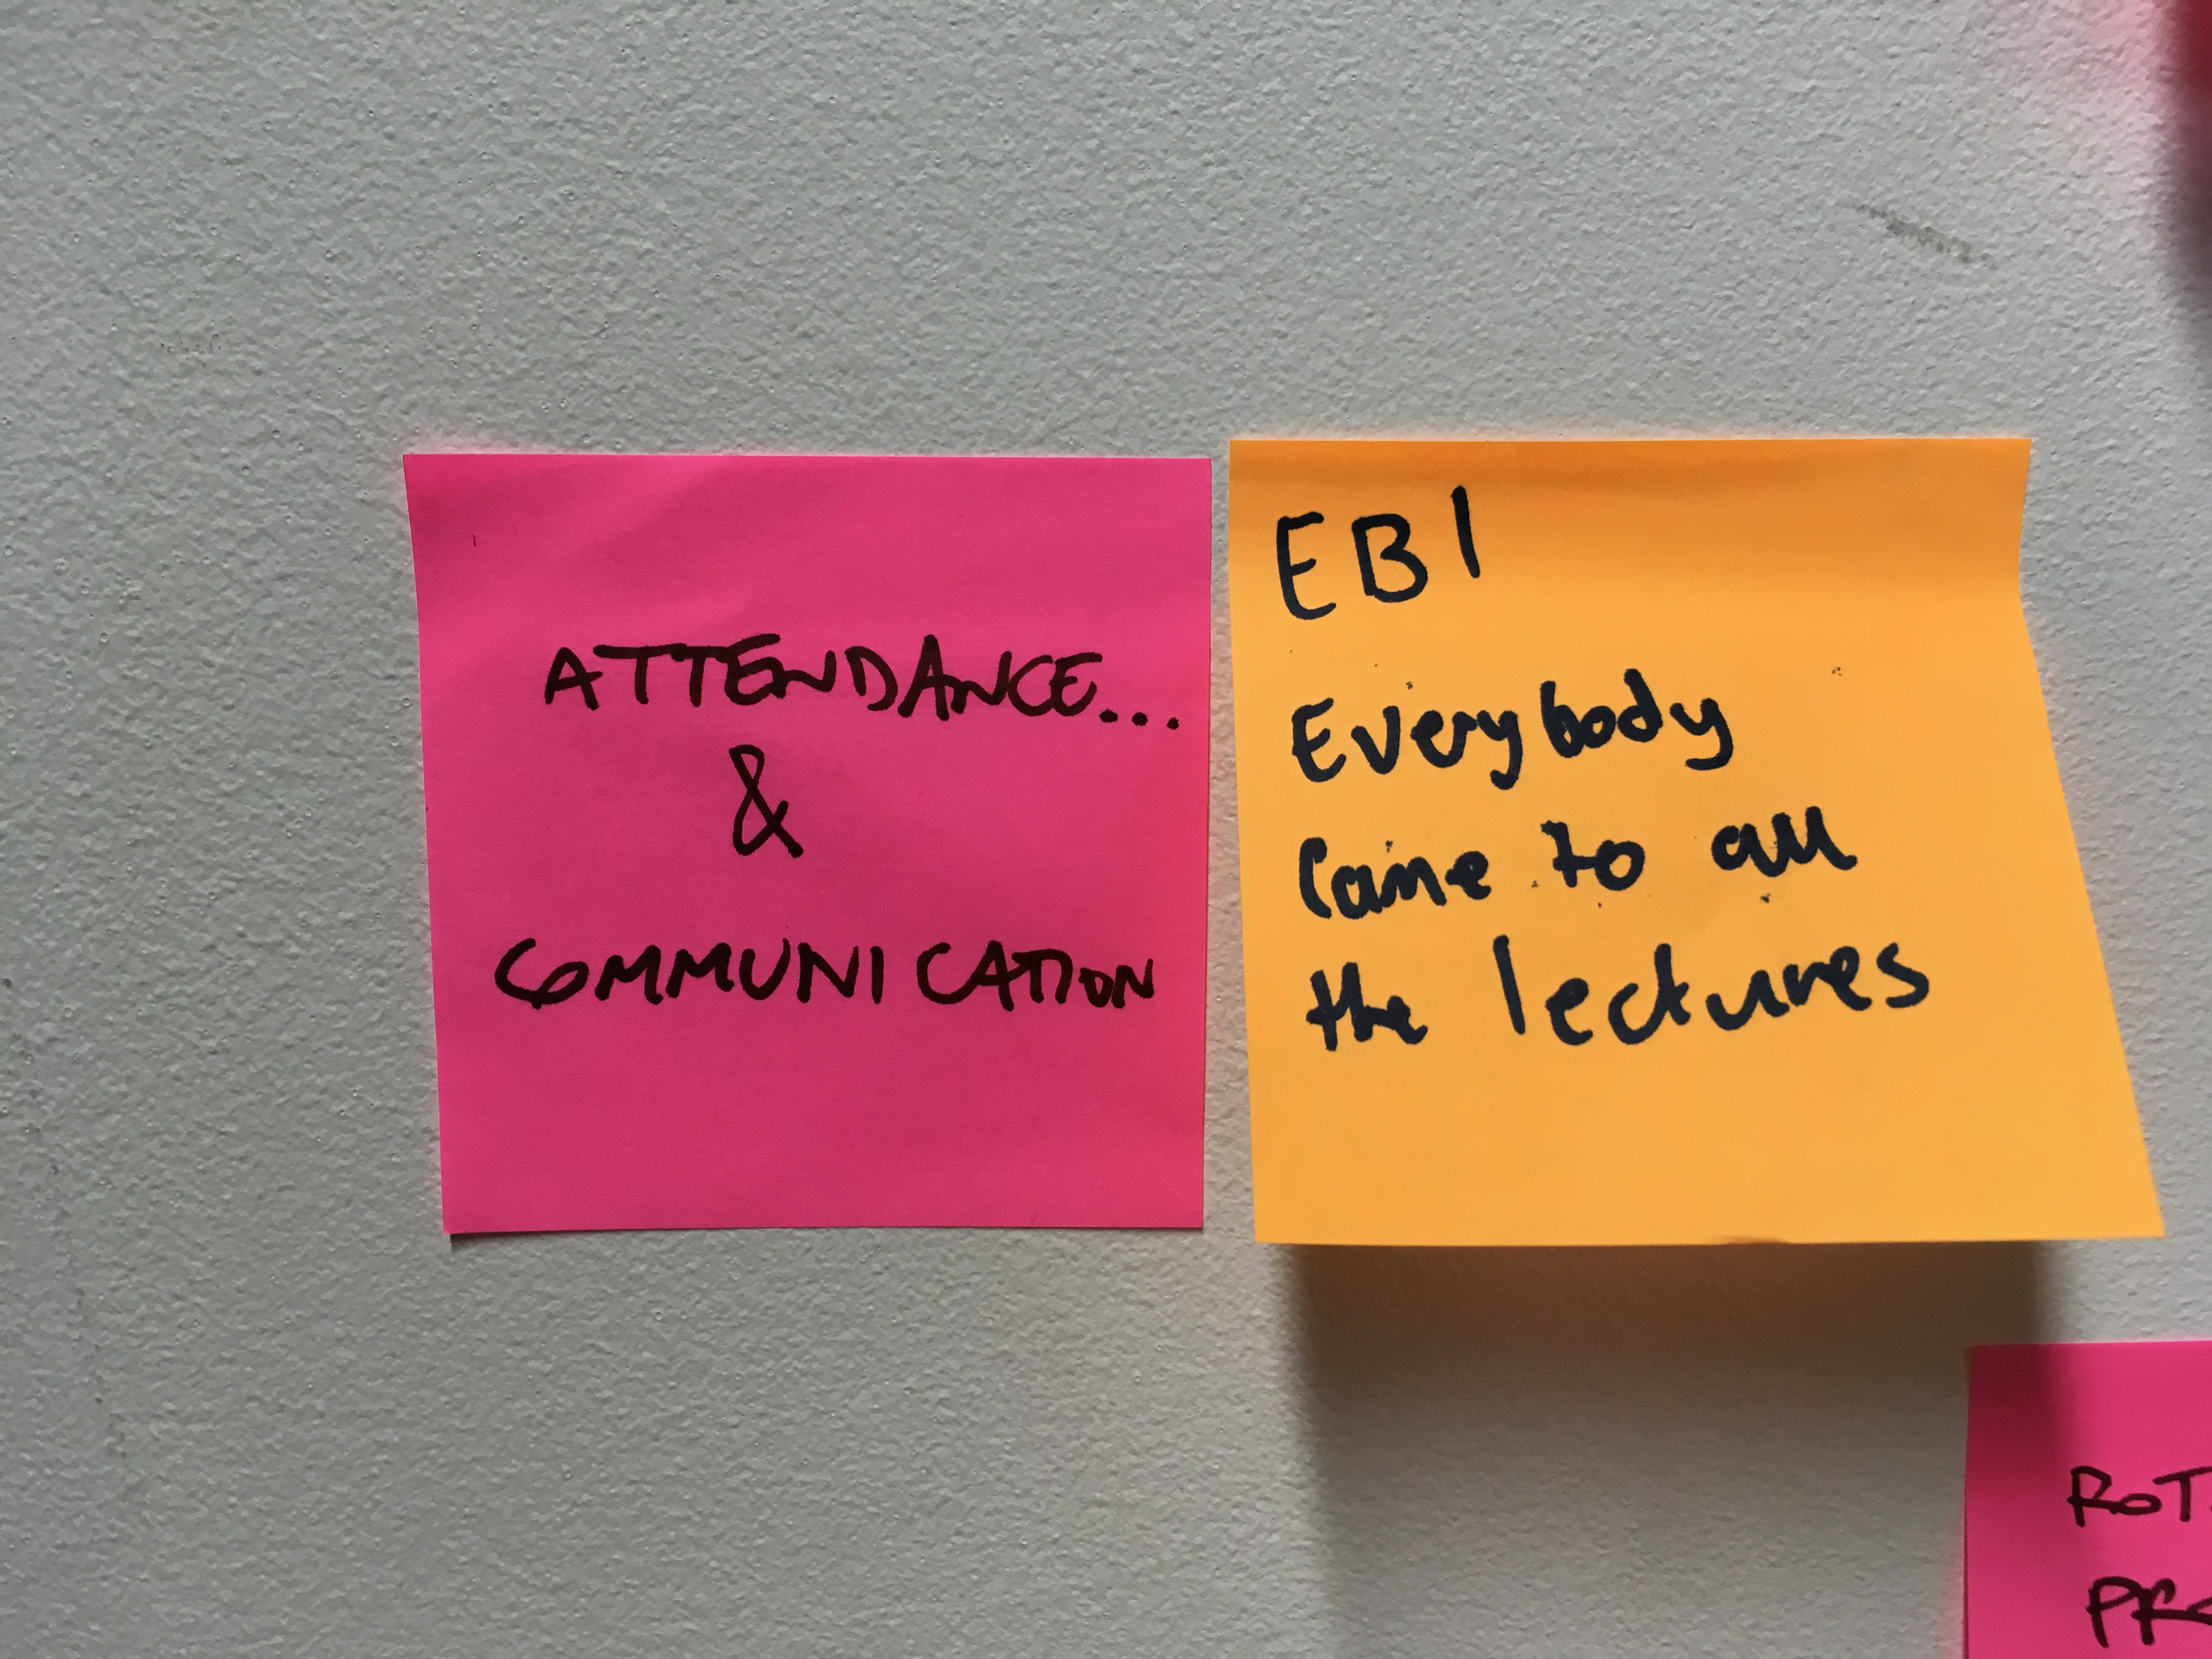 ATTENDANCE...
&
COMMUNICATION
EBI
Everybody
Came to all
the lectures